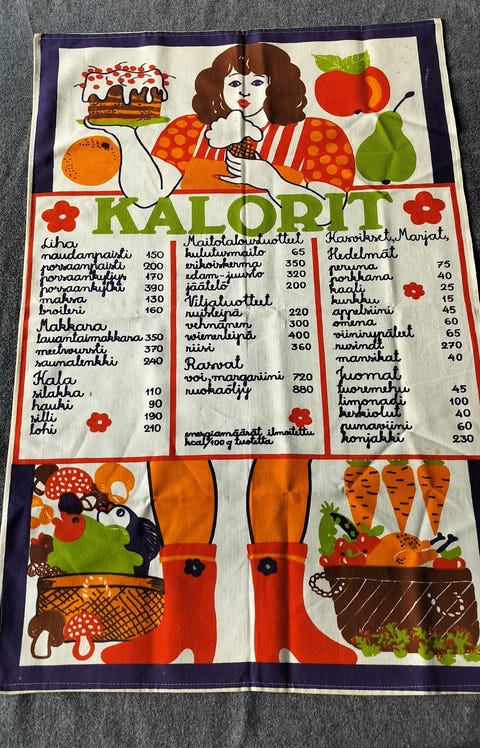 KALORIT
Liha
naudanpaisti 150
porsaanpaisti 200
porsaankyljys 170
porsaankylki 390
maksa 130
broileri 160
Makkara
lauantaimakkara 350
meetwursti 370
saunalenkki 240
Kala
silakka 110
hauki 90
silli 190
lohi 210
Maitotaloustuotteet
kulutusmaito 65
erikoiskerma 350
edam-juusto 320
jäätelö 200
Viljatuotteet
ruisleipä 220
vehnänen 300
wienerleipä 400
riisi 360
Rasvat
voi, margariini 720
ruokaöljy 880
energiamäärät ilmoitettu
kcal/100 g tuotetta
Kasvikset, Marjat,
Hedelmät
peruna 75
porkkana 40
kaali 25
kurkku 15
appelsiini 45
omena 60
viinirypäleet 65
rusinat 270
mansikat 40
Juomat
tuoremehu 45
limonadi 100
keskiolut 40
punaviini 60
konjakki 230